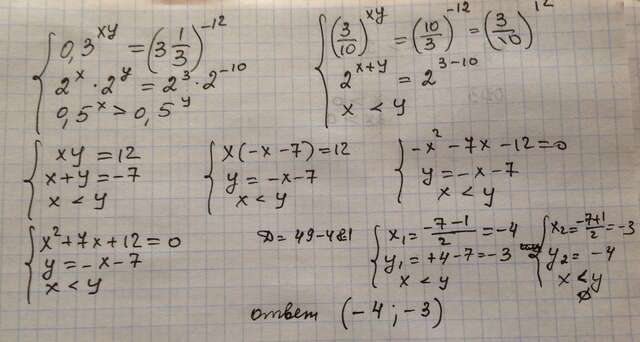 0,3^{xy} = (3 1/3)^{-12}
2^x · 2^y = 2^3 · 2^{-10}
0,5^x > 0,5^y
(3/10)^{xy} = (10/3)^{-12} = (3/10)^{12}
2^{x+y} = 2^{3-10}
x < y
xy = 12
x+y = -7
x < y
x(-x-7) = 12
y = -x-7
x < y
-x^2 - 7x - 12 = 0
y = -x-7
x < y
x^2 + 7x + 12 = 0
y = -x-7
x < y
D = 49-48=1
x_1 = (-7-1)/2 = -4
y_1 = +4-7 = -3
x < y
x_2 = (-7+1)/2 = -3
y_2 = -4
x < y
∅
ответ (-4; -3)